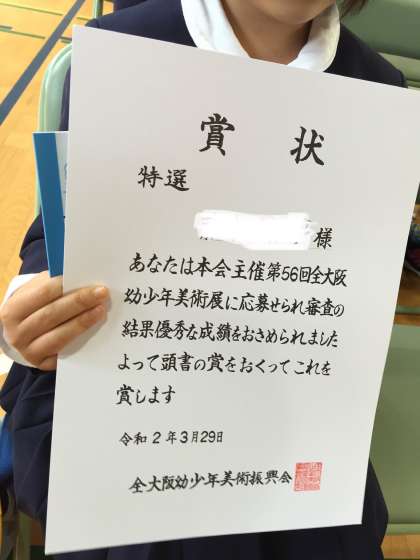 賞状
特選
様
あなたは本会主催第56回全大阪
幼少年美術展に応募せられ審査の
結果優秀な成績をおさめられました
よって頭書の賞をおくってこれを
賞します
令和2年3月29日
全大阪幼少年美術振興会